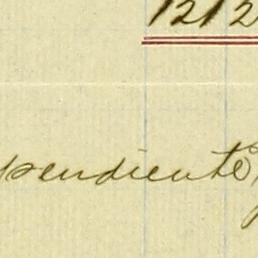 1212
pendiente